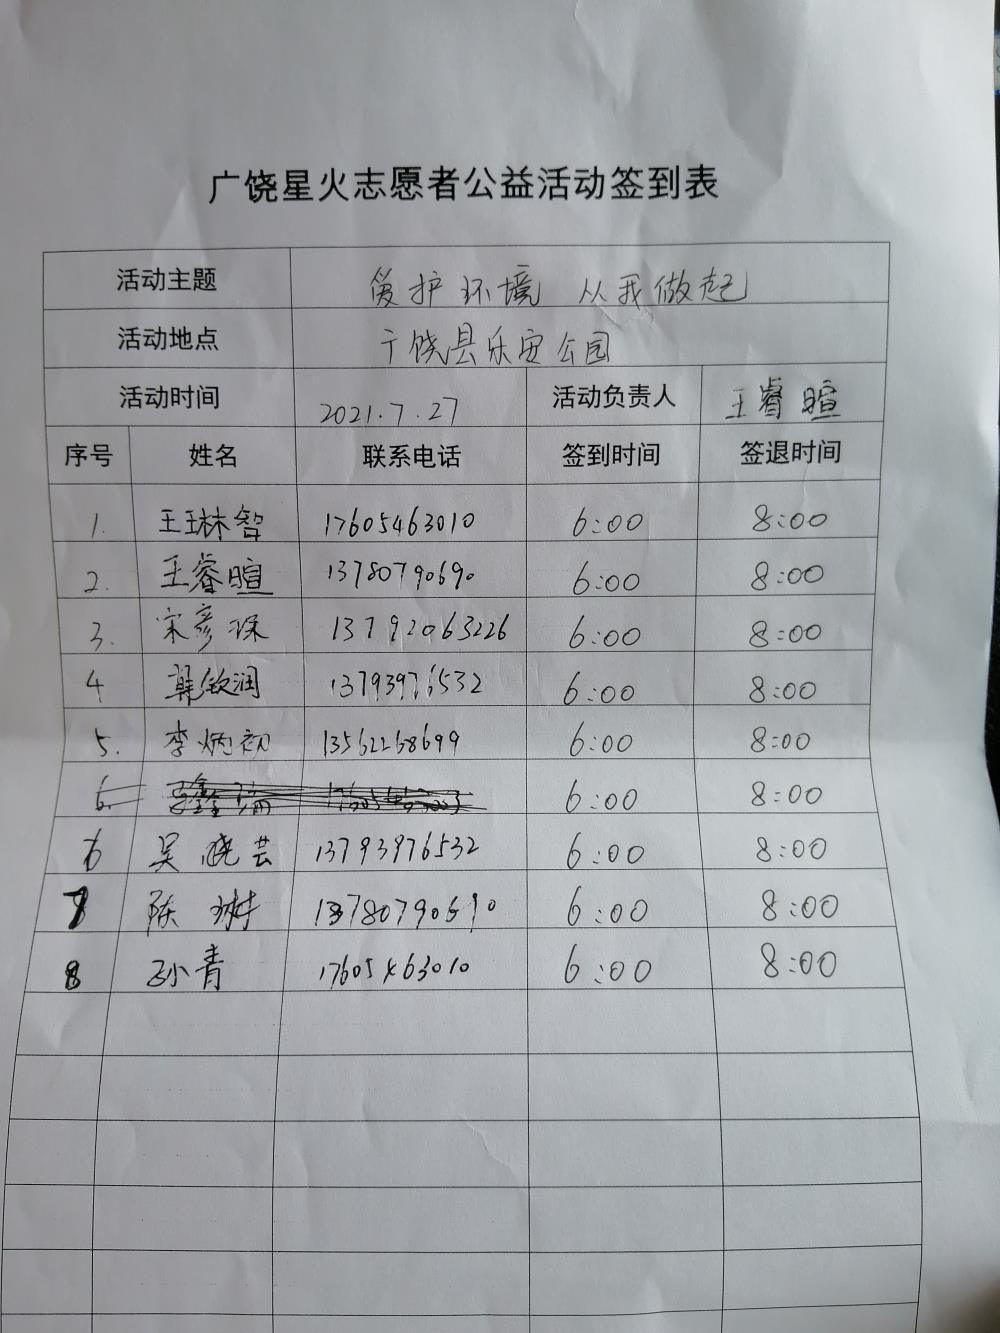 广饶星火志愿者公益活动签到表
活动主题 爱护环境 从我做起
活动地点 广饶县乐安公园
活动时间 2021.7.27 活动负责人 王睿暄
序号 姓名 联系电话 签到时间 签退时间
1. 王琳智 17605463010 6:00 8:00
2. 王睿暄 13780790690 6:00 8:00
3. 宋彦琛 13792063226 6:00 8:00
4 韩钦润 13793976532 6:00 8:00
5. 李炳初 13562268699 6:00 8:00
6 6:00 8:00
6 吴晓芸 13793976532 6:00 8:00
7 陈琳 13780790690 6:00 8:00
8 孙青 17605463010 6:00 8:00